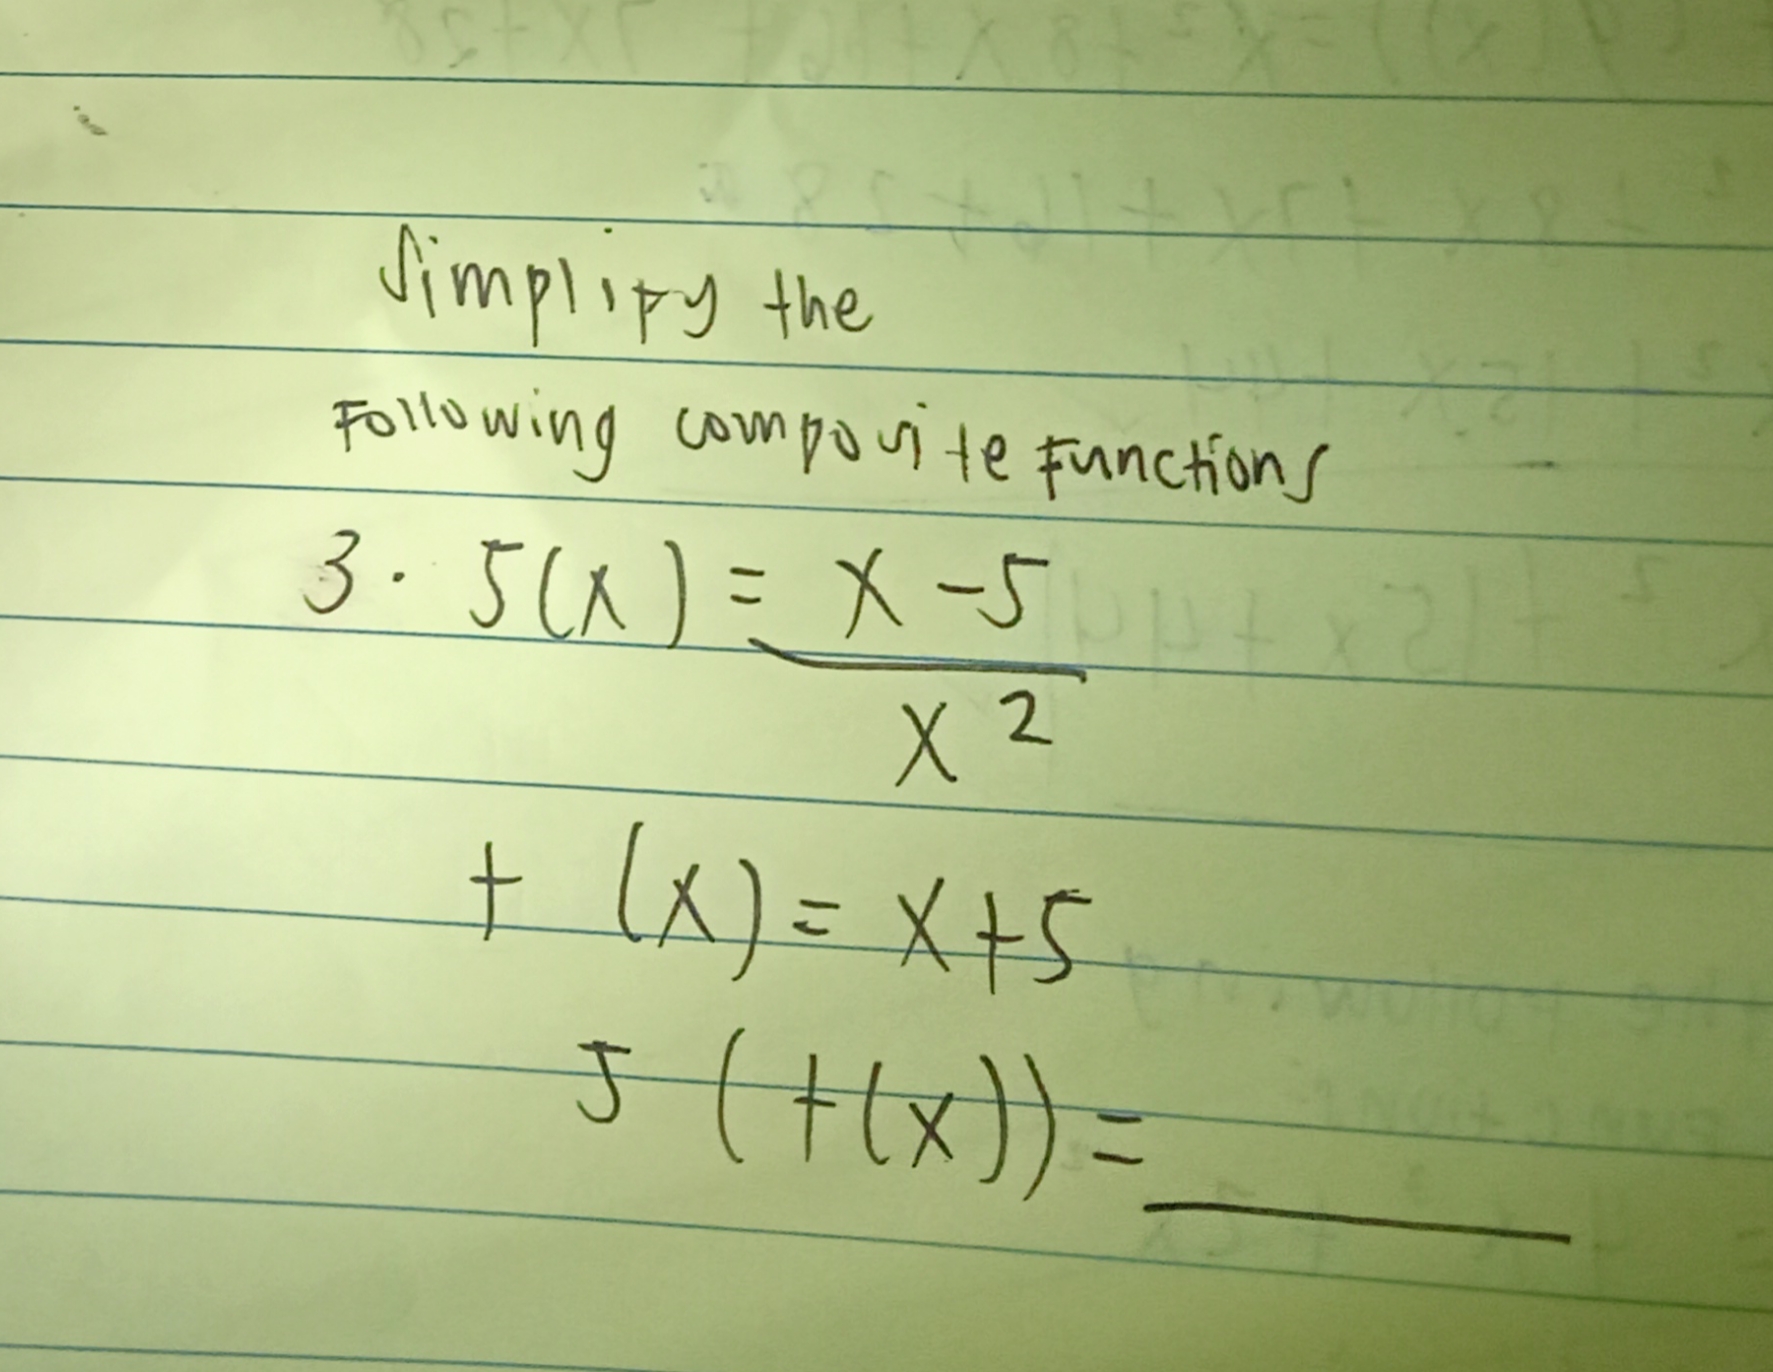 Simplify the
Following composite functions
3. 5(x) = x - 5
x²
t (x) = x + 5
5 (t(x)) =